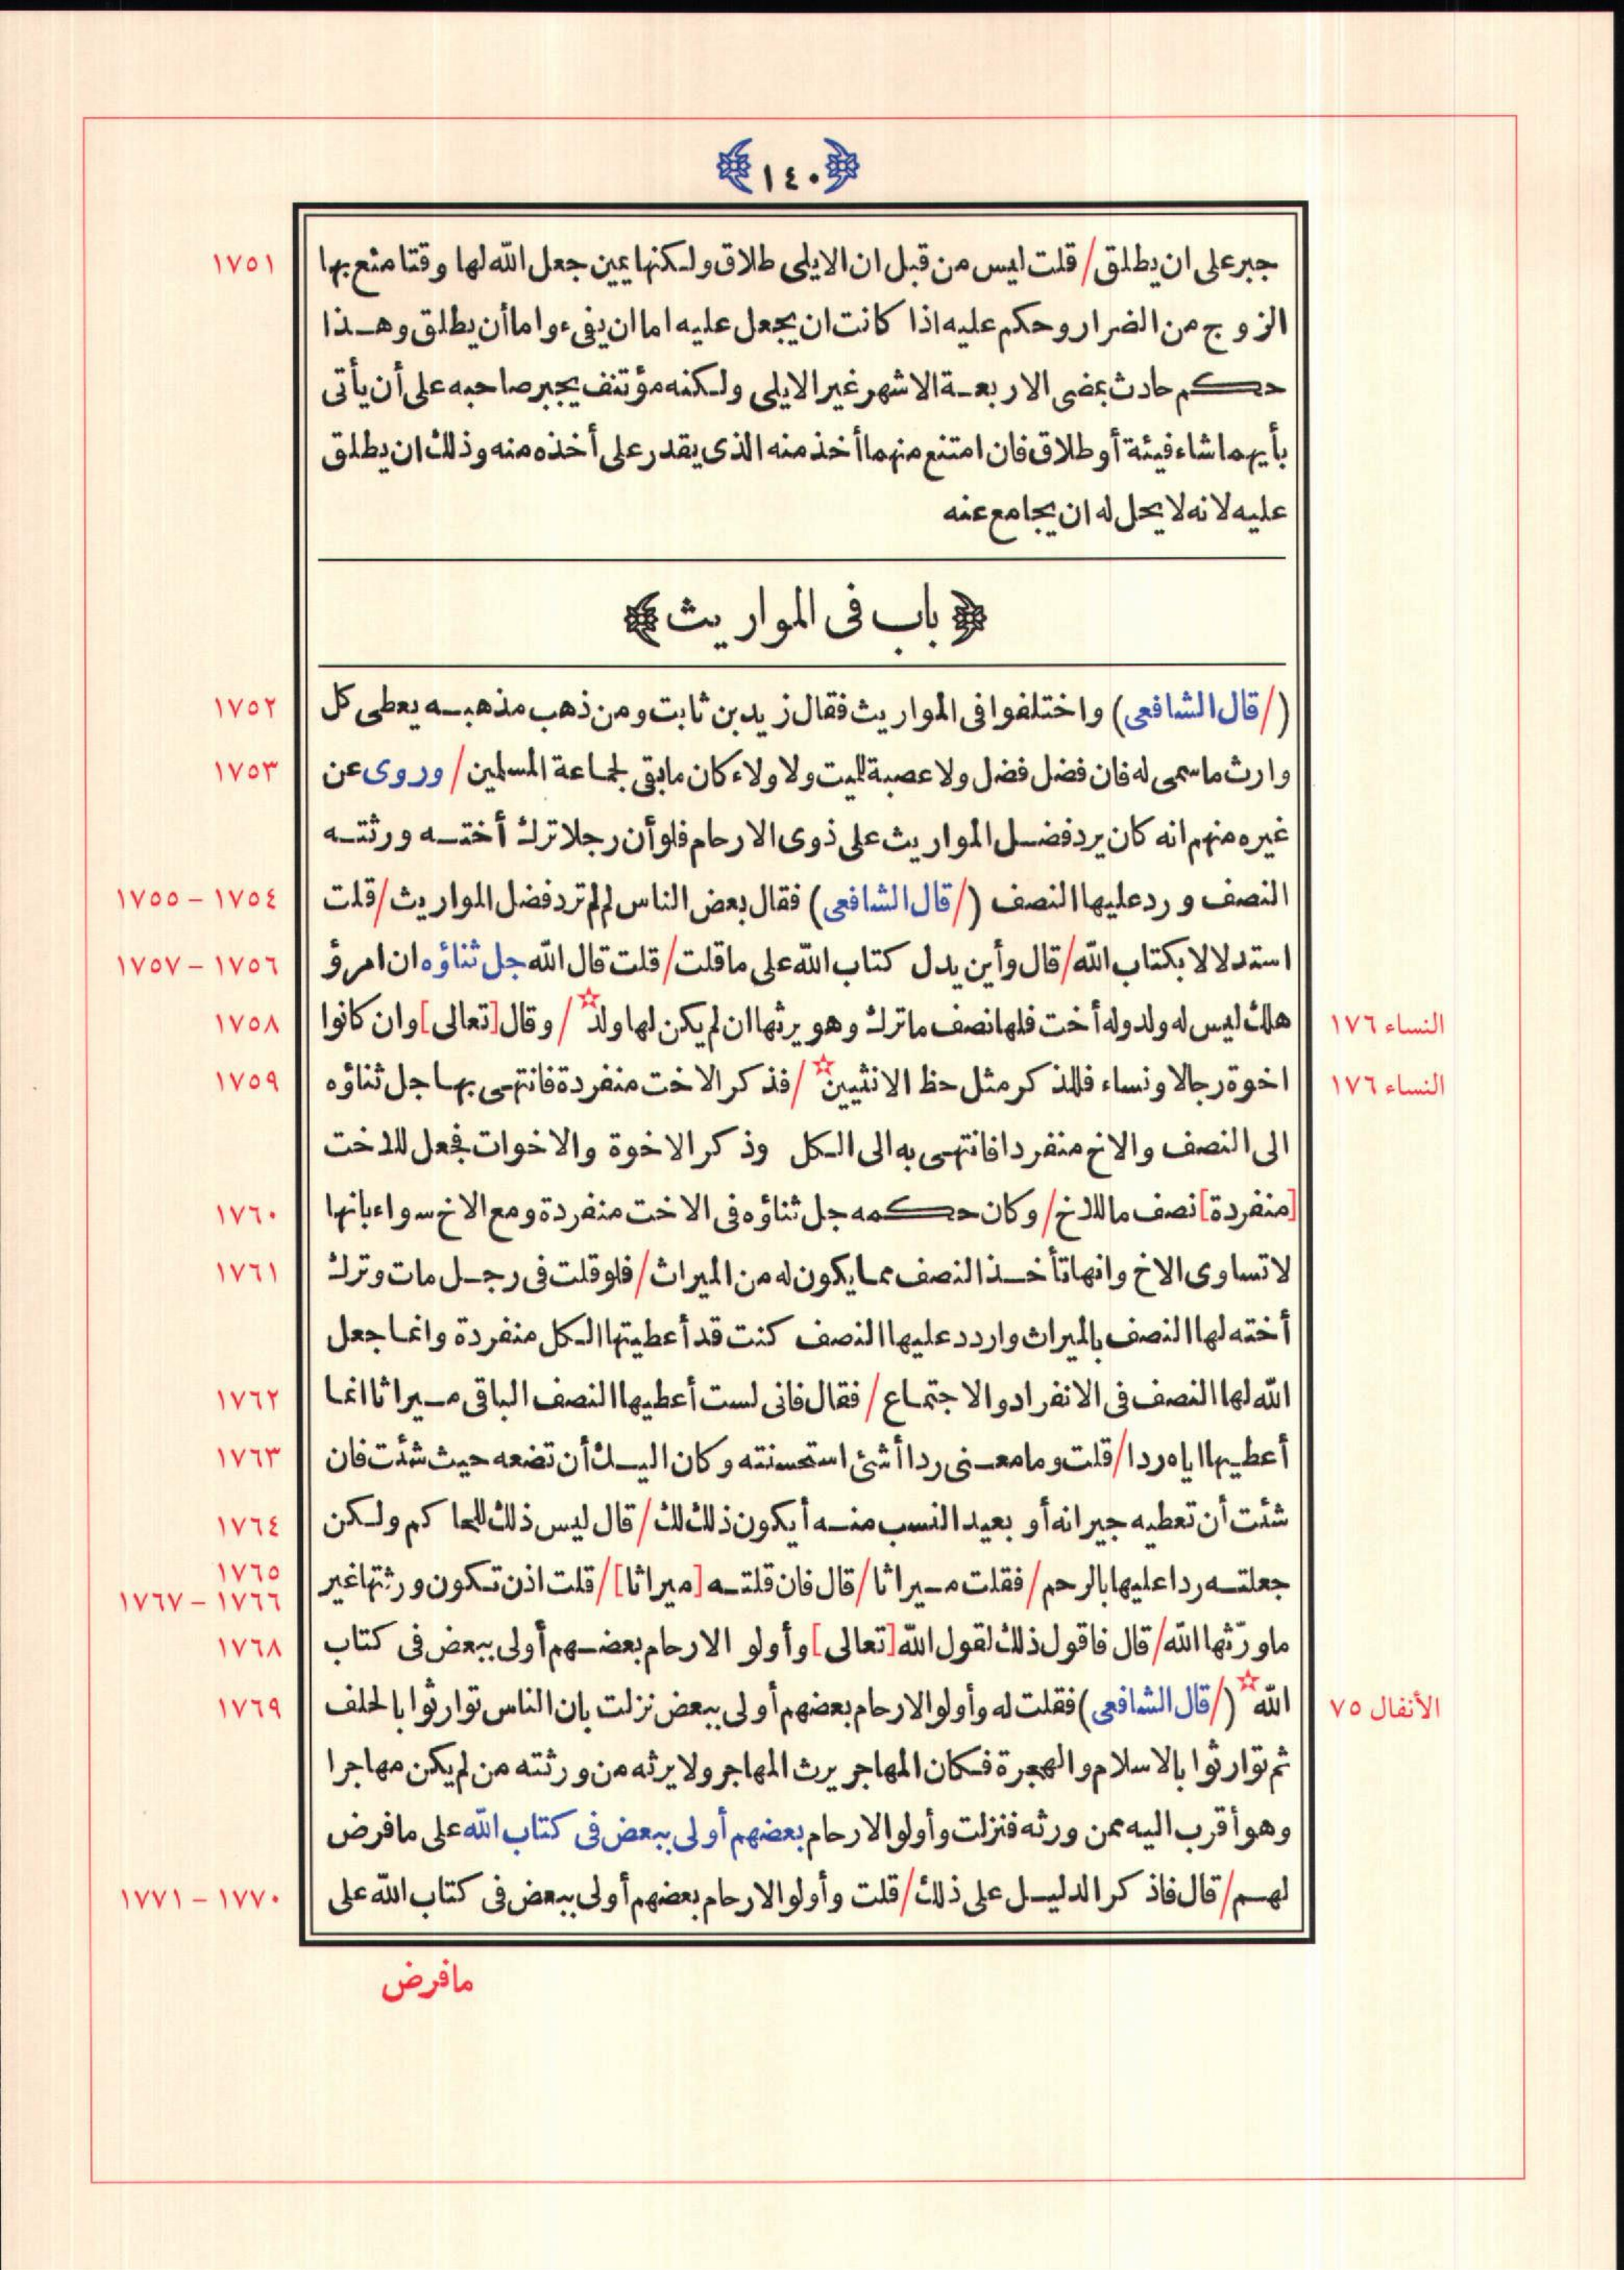 ﴿١٤٠﴾
جبر على ان يطلق/ قلت ليس من قبل ان الايلى طلاق ولكنها يمين جعل الله لها وقتا منع بها ١٧٥١
الزوج من الضرار وحكم عليه اذا كانت ان يجعل عليه اما ان يفىء واما أن يطلق وهذا
حكم حادث بمضى الاربعة الاشهر غير الايلى ولكنه مؤتنف يجبر صاحبه على أن يأتى
بأيهما شاء فيئة أو طلاق فان امتنع منهما أخذ منه الذى يقدر على أخذه منه وذلك ان يطلق
عليه لانه لا يحل له ان يجامع عنه
﴿ باب فى المواريث ﴾
(/ قال الشافعى) واختلفوا فى المواريث فقال زيد بن ثابت ومن ذهب مذهبه يعطى كل ١٧٥٢
وارث ما سمى له فان فضل فضل ولا عصبة لليت ولا ولاء كان ما بقى لجماعة المسلمين/ وروى عن ١٧٥٣
غيره منهم انه كان يرد فضل المواريث على ذوى الارحام فلو أن رجلا ترك أخته ورثته
النصف ورد عليها النصف (/ قال الشافعى) فقال بعض الناس لم لم ترد فضل المواريث/ قلت ١٧٥٤ – ١٧٥٥
استدلالا بكتاب الله/ قال وأين يدل كتاب الله على ما قلت/ قلت قال الله جل ثناؤه ان امرؤ ١٧٥٦ – ١٧٥٧
النساء ١٧٦ هلك ليس له ولد وله أخت فلها نصف ما ترك وهو يرثها ان لم يكن لها ولد☆ / وقال [تعالى] وان كانوا ١٧٥٨
النساء ١٧٦ اخوة رجالا ونساء فللذكر مثل حظ الانثيين☆ / فذكر الاخت منفردة فانتهى بها جل ثناؤه ١٧٥٩
الى النصف والاخ منفردا فانتهى به الى الكل وذكر الاخوة والاخوات فجعل للاخت
[منفردة] نصف ما للاخ/ وكان حكمه جل ثناؤه فى الاخت منفردة ومع الاخ سواء بانها ١٧٦٠
لا تساوى الاخ وانها تأخذ النصف مما يكون له من الميراث/ فلو قلت فى رجل مات وترك ١٧٦١
أخته لها النصف بالميراث واردد عليها النصف كنت قد أعطيتها الكل منفردة وانما جعل
الله لها النصف فى الانفراد والاجتماع/ فقال فانى لست أعطيها النصف الباقى ميراثا انما ١٧٦٢
أعطيها اياه ردا/ قلت وما معنى ردا أشئ استحسنته وكان اليك أن تضعه حيث شئت فان ١٧٦٣
شئت أن تعطيه جيرانه أو بعيد النسب منه أيكون ذلك لك/ قال ليس ذلك للحاكم ولكن ١٧٦٤
جعلته ردا عليها بالرحم/ فقلت ميراثا/ قال فان قلته [ميراثا]/ قلت اذن تكون ورثتها غير ١٧٦٥ ١٧٦٦ – ١٧٦٧
ما ورّثها الله/ قال فاقول ذلك لقول الله [تعالى] وأولو الارحام بعضهم أولى ببعض فى كتاب ١٧٦٨
الأنفال ٧٥ الله☆ (/ قال الشافعى) فقلت له وأولو الارحام بعضهم أولى ببعض نزلت بان الناس توارثوا بالحلف ١٧٦٩
ثم توارثوا بالاسلام والهجرة فكان المهاجر يرث المهاجر ولا يرثه من ورثته من لم يكن مهاجرا
وهو أقرب اليه ممن ورثه فنزلت وأولو الارحام بعضهم أولى ببعض فى كتاب الله على ما فرض
لهم/ قال فاذكر الدليل على ذلك/ قلت وأولو الارحام بعضهم أولى ببعض فى كتاب الله على ١٧٧٠ – ١٧٧١
ما فرض